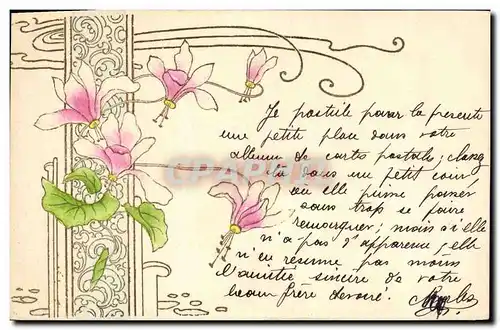 Je postule pour la présente
une petite place dans votre
album de cartes postales; classez
la dans un petit coin
où elle puisse passer
sans trop se faire
remarquer; mais si elle
n'a pas d'apparence, elle
n'en résume pas moins
l'amitié sincère de votre
beau frère dévoué.